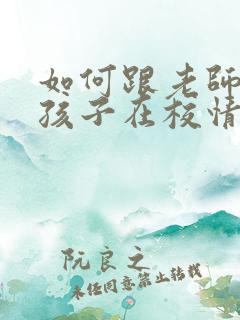 如何跟老師
孩子在校情
阮良之
未经同意禁止转载